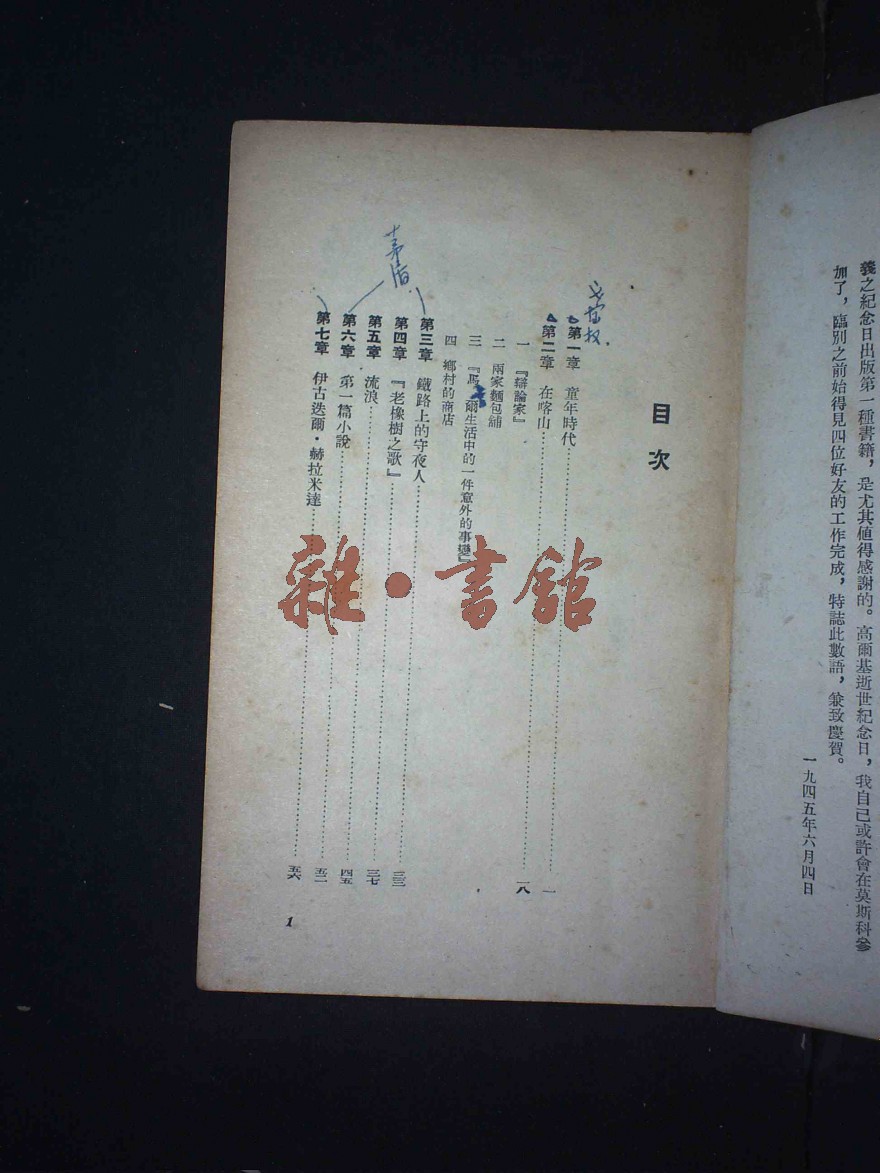 義之紀念日出版第一種書籍，是尤其値得感謝的。高爾基逝世紀念日，我自己或許會在莫斯科參
加了，臨別之前始得見四位好友的工作完成，特誌此數語，兼致慶賀。
一九四五年六月四日
目次
戈宝权
第一章 童年時代……一
第二章 在喀山……一八
一 『辯論家』
二 兩家麵包舖
三 『馬 爾生活中的一件意外的事變』
四 鄉村的商店
茅盾
第三章 鐵路上的守夜人……三三
第四章 『老橡樹之歌』……三七
第五章 流浪……四五
第六章 第一篇小說……五二
第七章 伊古迭爾·赫拉米達……五六
1
雜·書館